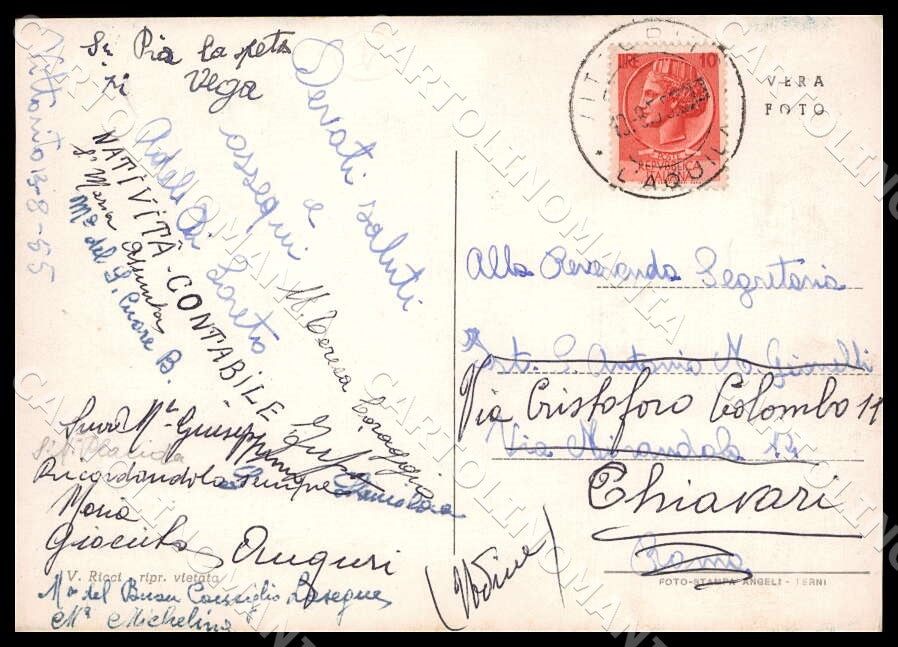 Sr Pia la peta
Vega
Vittorito 13-8-55
Devoti saluti
e
ossequi
di Loreto
NATIVITÀ - CONTABILE
Sr Maria Assunta
Ma del S. Cuore B.
M. Teresa
Suor Ma Giuseppina
Ricordandola sempre
Maria
Giacinta Auguri
V. Ricci - ripr. vietata
Ma del Buon Consiglio
Ma Michelina
LIRE 10
POSTE
REPUBBLICA
ITALIANA
VITTORITO
* L'AQUILA
VERA
FOTO
Alla Reverenda Segretaria
Ist. S. Antonio M. Gianelli
Via Cristoforo Colombo 11
Via Mirandola 12
Chiavari
Roma
FOTO-STAMPA ANGELI - TERNI
CARTOLINOMANIA